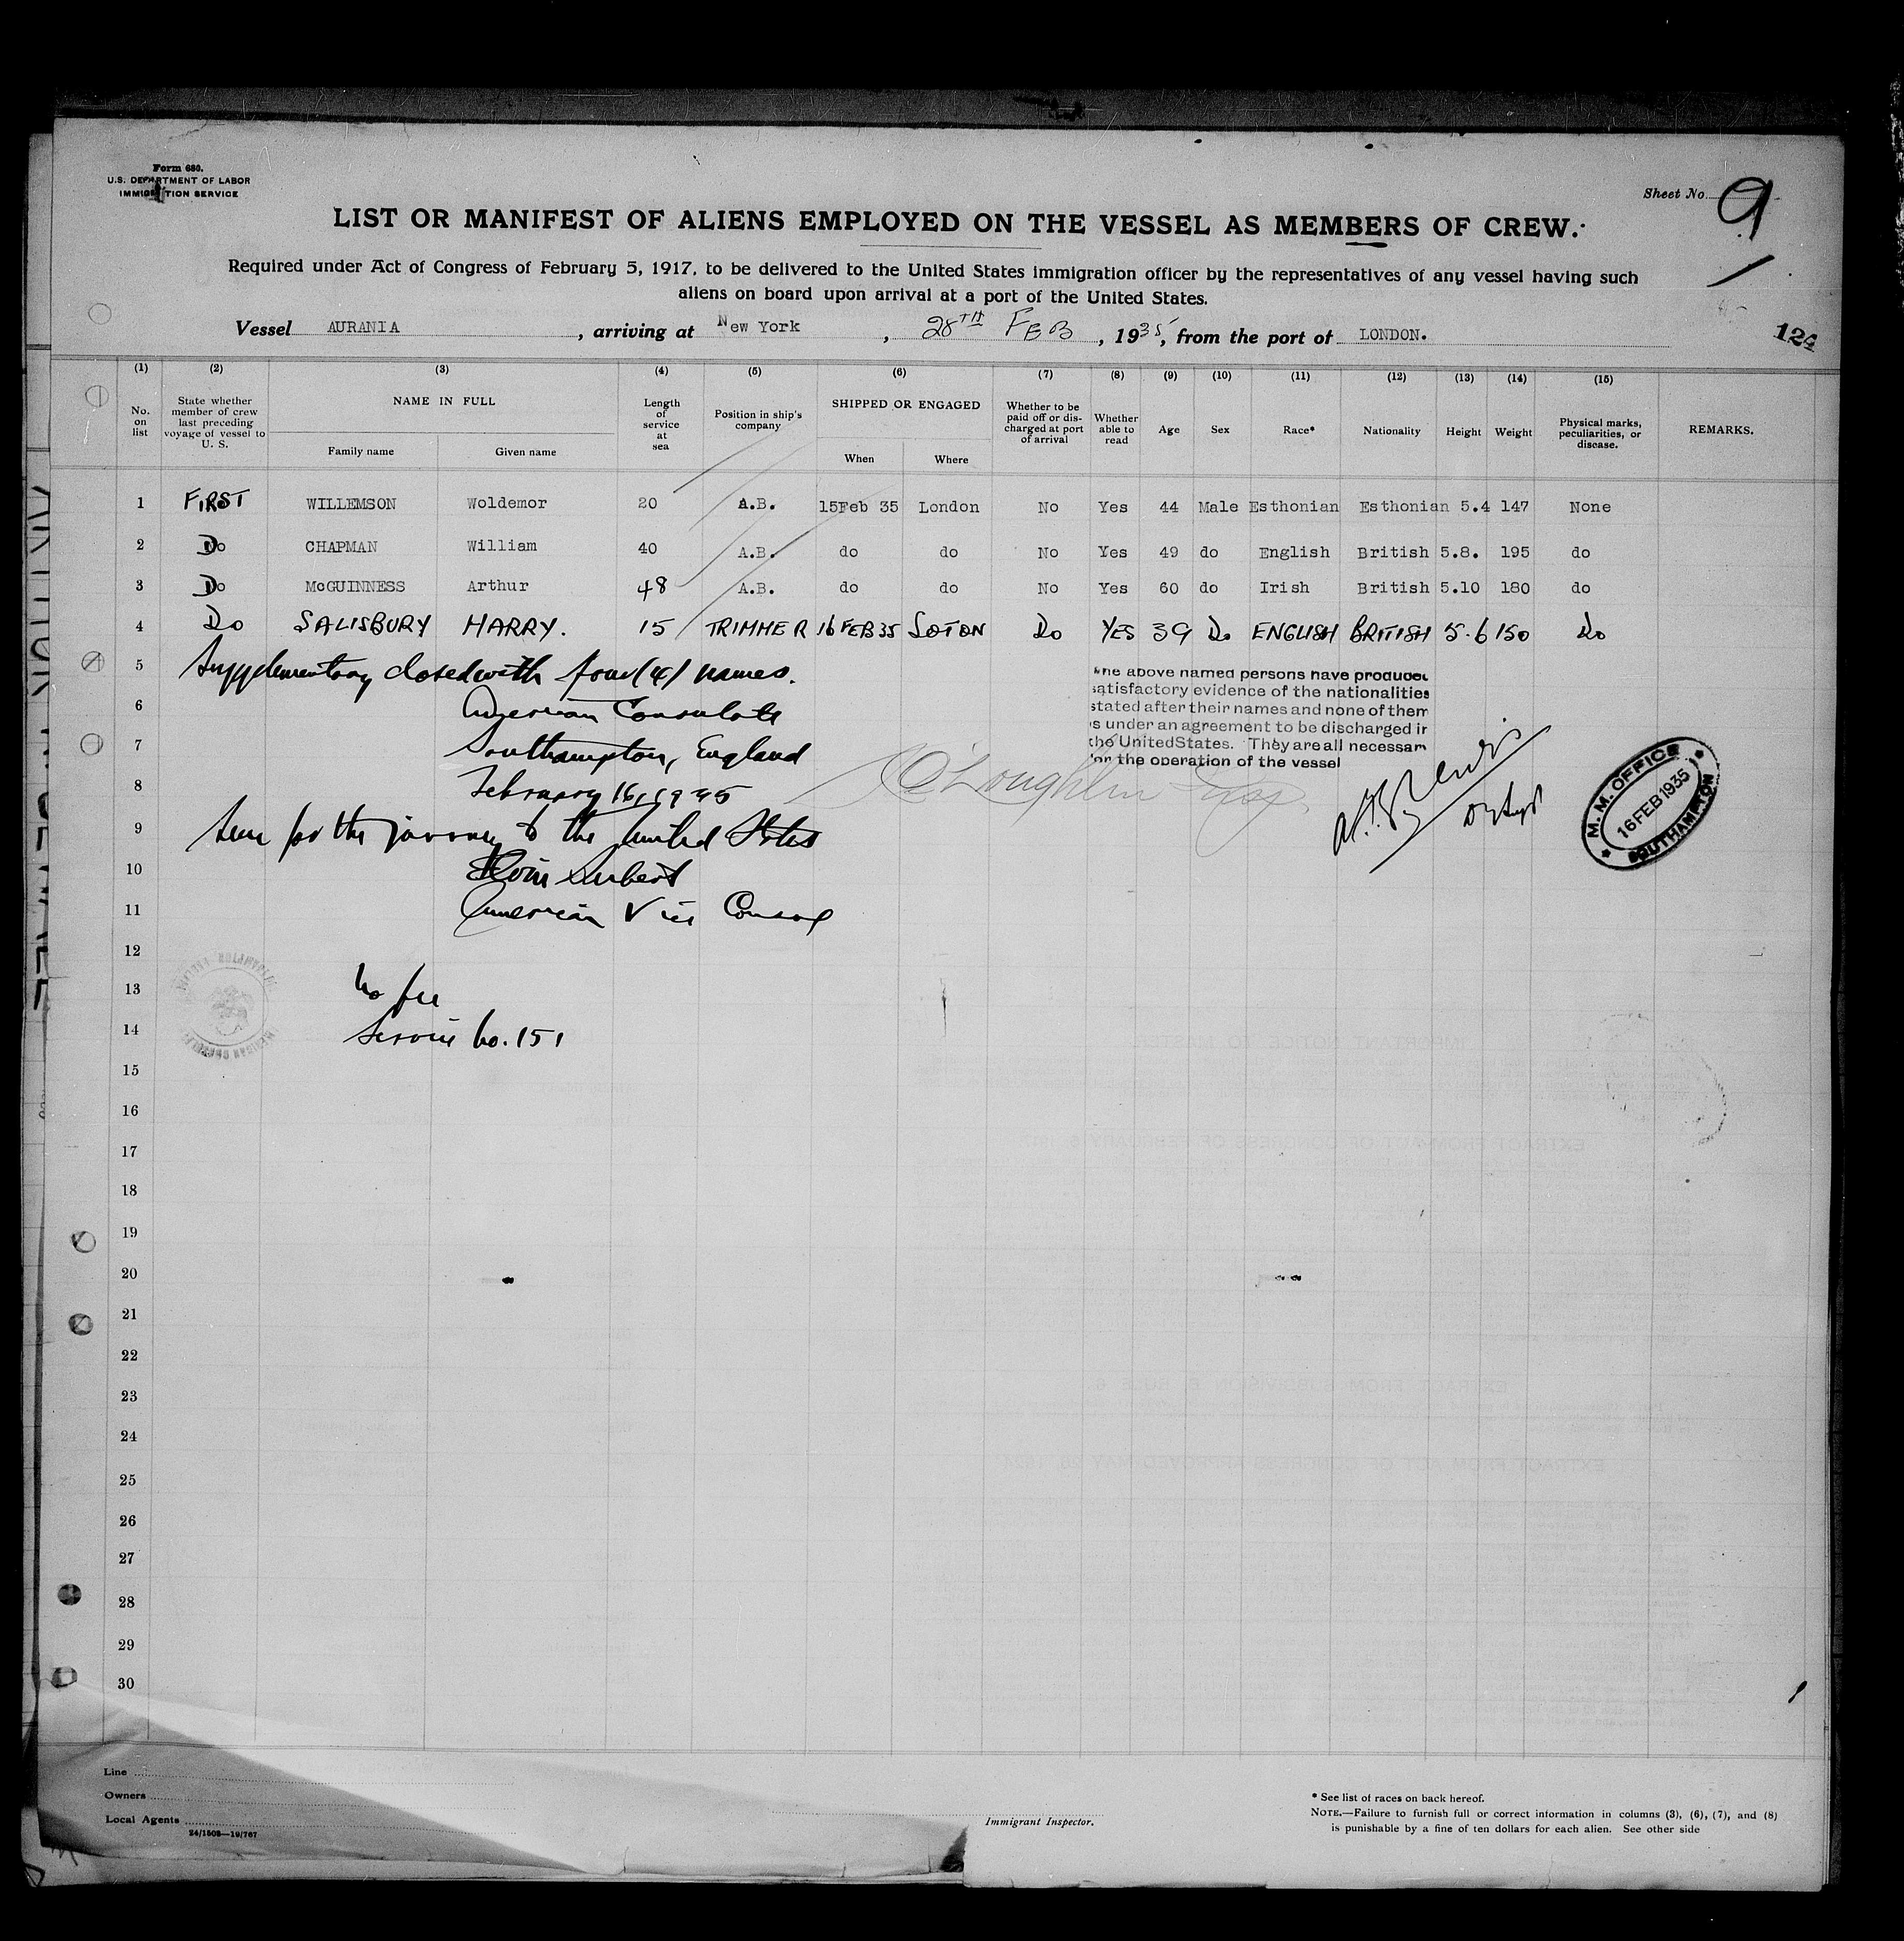 Form 680.
U.S. DEPARTMENT OF LABOR
IMMIGRATION SERVICE
Sheet No. 9
LIST OR MANIFEST OF ALIENS EMPLOYED ON THE VESSEL AS MEMBERS OF CREW.
Required under Act of Congress of February 5, 1917, to be delivered to the United States immigration officer by the representatives of any vessel having such
aliens on board upon arrival at a port of the United States.
Vessel AURANIA, arriving at New York, 28TH FEB, 1935, from the port of LONDON.
124
(1) (2) (3) (4) (5) (6) (7) (8) (9) (10) (11) (12) (13) (14) (15)
No. on list
State whether member of crew last preceding voyage of vessel to U. S.
NAME IN FULL
Family name Given name
Length of service at sea
Position in ship's company
SHIPPED OR ENGAGED
When Where
Whether to be paid off or discharged at port of arrival
Whether able to read
Age
Sex
Race*
Nationality
Height
Weight
Physical marks, peculiarities, or disease.
REMARKS.
1 FIRST WILLEMSON Woldemor 20 A.B. 15Feb 35 London No Yes 44 Male Esthonian Esthonian 5.4 147 None
2 Do CHAPMAN William 40 A.B. do do No Yes 49 do English British 5.8. 195 do
3 Do McGUINNESS Arthur 48 A.B. do do No Yes 60 do Irish British 5.10 180 do
4 Do SALISBURY HARRY. 15 TRIMMER 16 FEB 35 SOTON Do YES 39 Do ENGLISH BRITISH 5.6 150 Do
5 Supplementary closed with four (4) names.
6 American Consulate
7 Southampton, England
8 February 16, 1935
9 Seen for the journey to the United States
10
11 American Vice Consul
12
13 No fee
14 Service No. 151
15
16
17
18
19
20
21
22
23
24
25
26
27
28
29
30
The above named persons have produced
satisfactory evidence of the nationalities
stated after their names and none of them
is under an agreement to be discharged in
the United States. They are all necessary
for the operation of the vessel
O'Loughlin
Lewis
M. M. OFFICE
16 FEB 1935
SOUTHAMPTON
Line
Owners
Local Agents
24/1508—19/767
Immigrant Inspector.
* See list of races on back hereof.
NOTE.—Failure to furnish full or correct information in columns (3), (6), (7), and (8)
is punishable by a fine of ten dollars for each alien. See other side